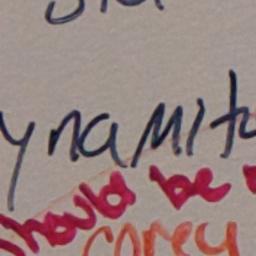 ynamit
should be
corey